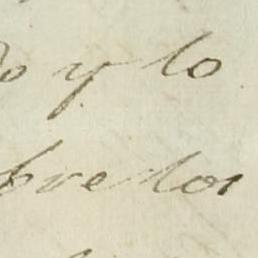 y lo
bre los